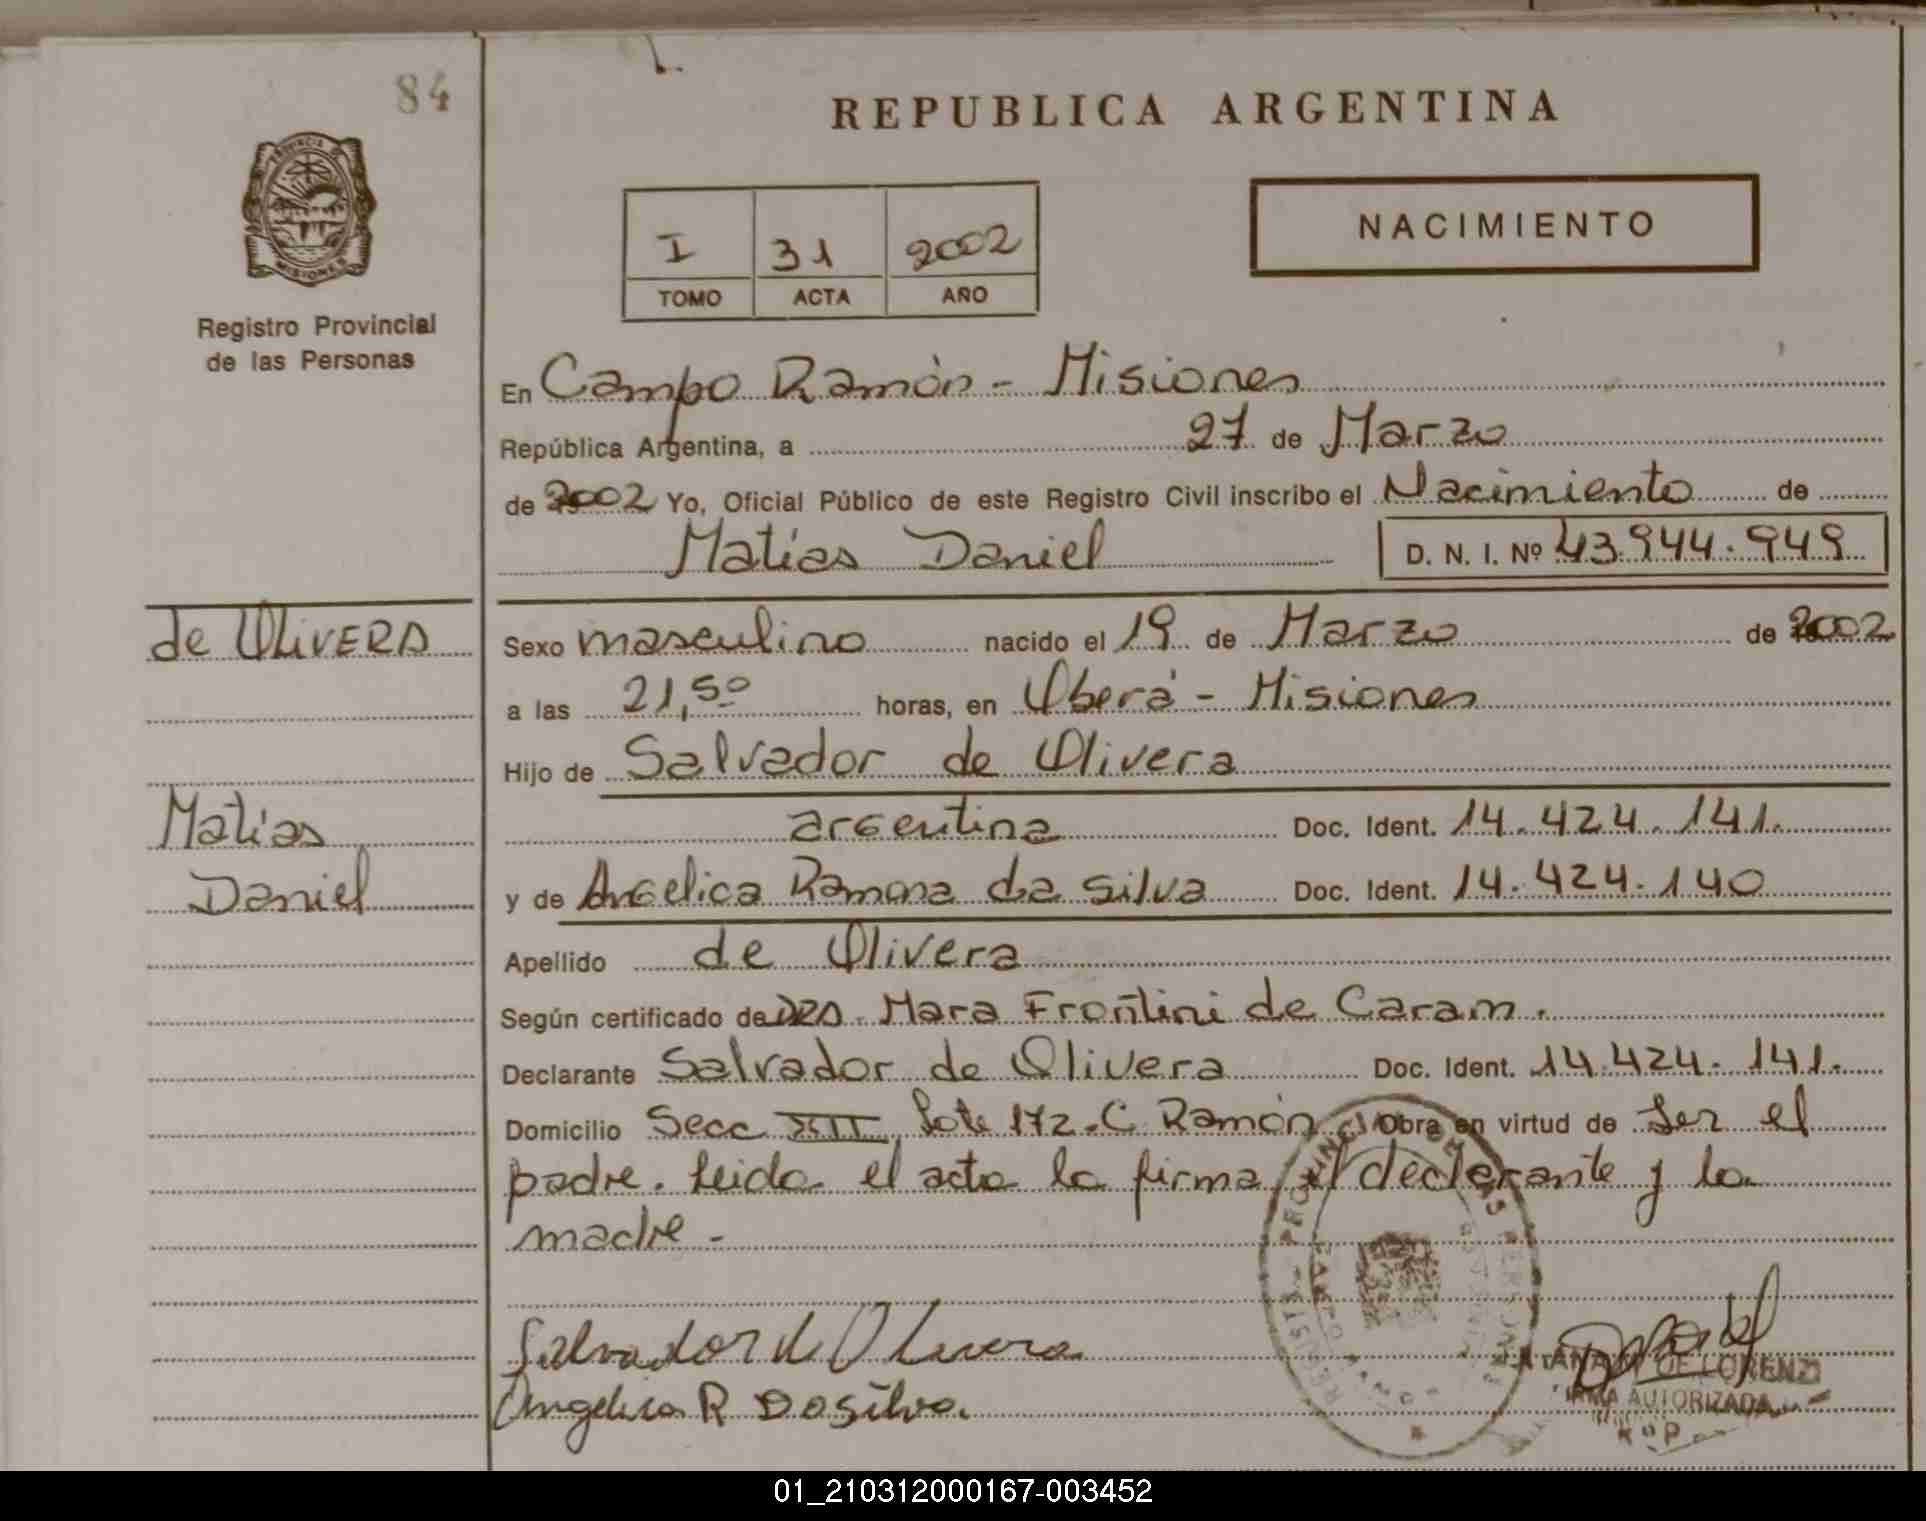 84
REPUBLICA ARGENTINA
PROVINCIA DE
MISIONES
Registro Provincial
de las Personas
NACIMIENTO
I 31 2002
TOMO ACTA AÑO
En Campo Ramón - Misiones
República Argentina, a 27 de Marzo
de 2002 Yo, Oficial Público de este Registro Civil inscribo el Nacimiento de
Matías Daniel D. N. I. Nº 43.944.949
de Olivera
Matías
Daniel
Sexo masculino nacido el 19 de Marzo de 2002
a las 21,50 horas, en Oberá - Misiones
Hijo de Salvador de Olivera
argentina Doc. Ident. 14.424.141.
y de Angelica Ramona da Silva Doc. Ident. 14.424.140
Apellido de Olivera
Según certificado de DRA. Mara Frontini de Caram.
Declarante Salvador de Olivera Doc. Ident. 14.424.141.
Domicilio Secc XIII Lote 172. C. Ramón Obra en virtud de Ser el
padre. Leida el acta la firma el declarante y la
madre -
Salvador de Olivera
Angelica R Dasilva.
DE LORENZI
FIRMA AUTORIZADA
01_210312000167-003452